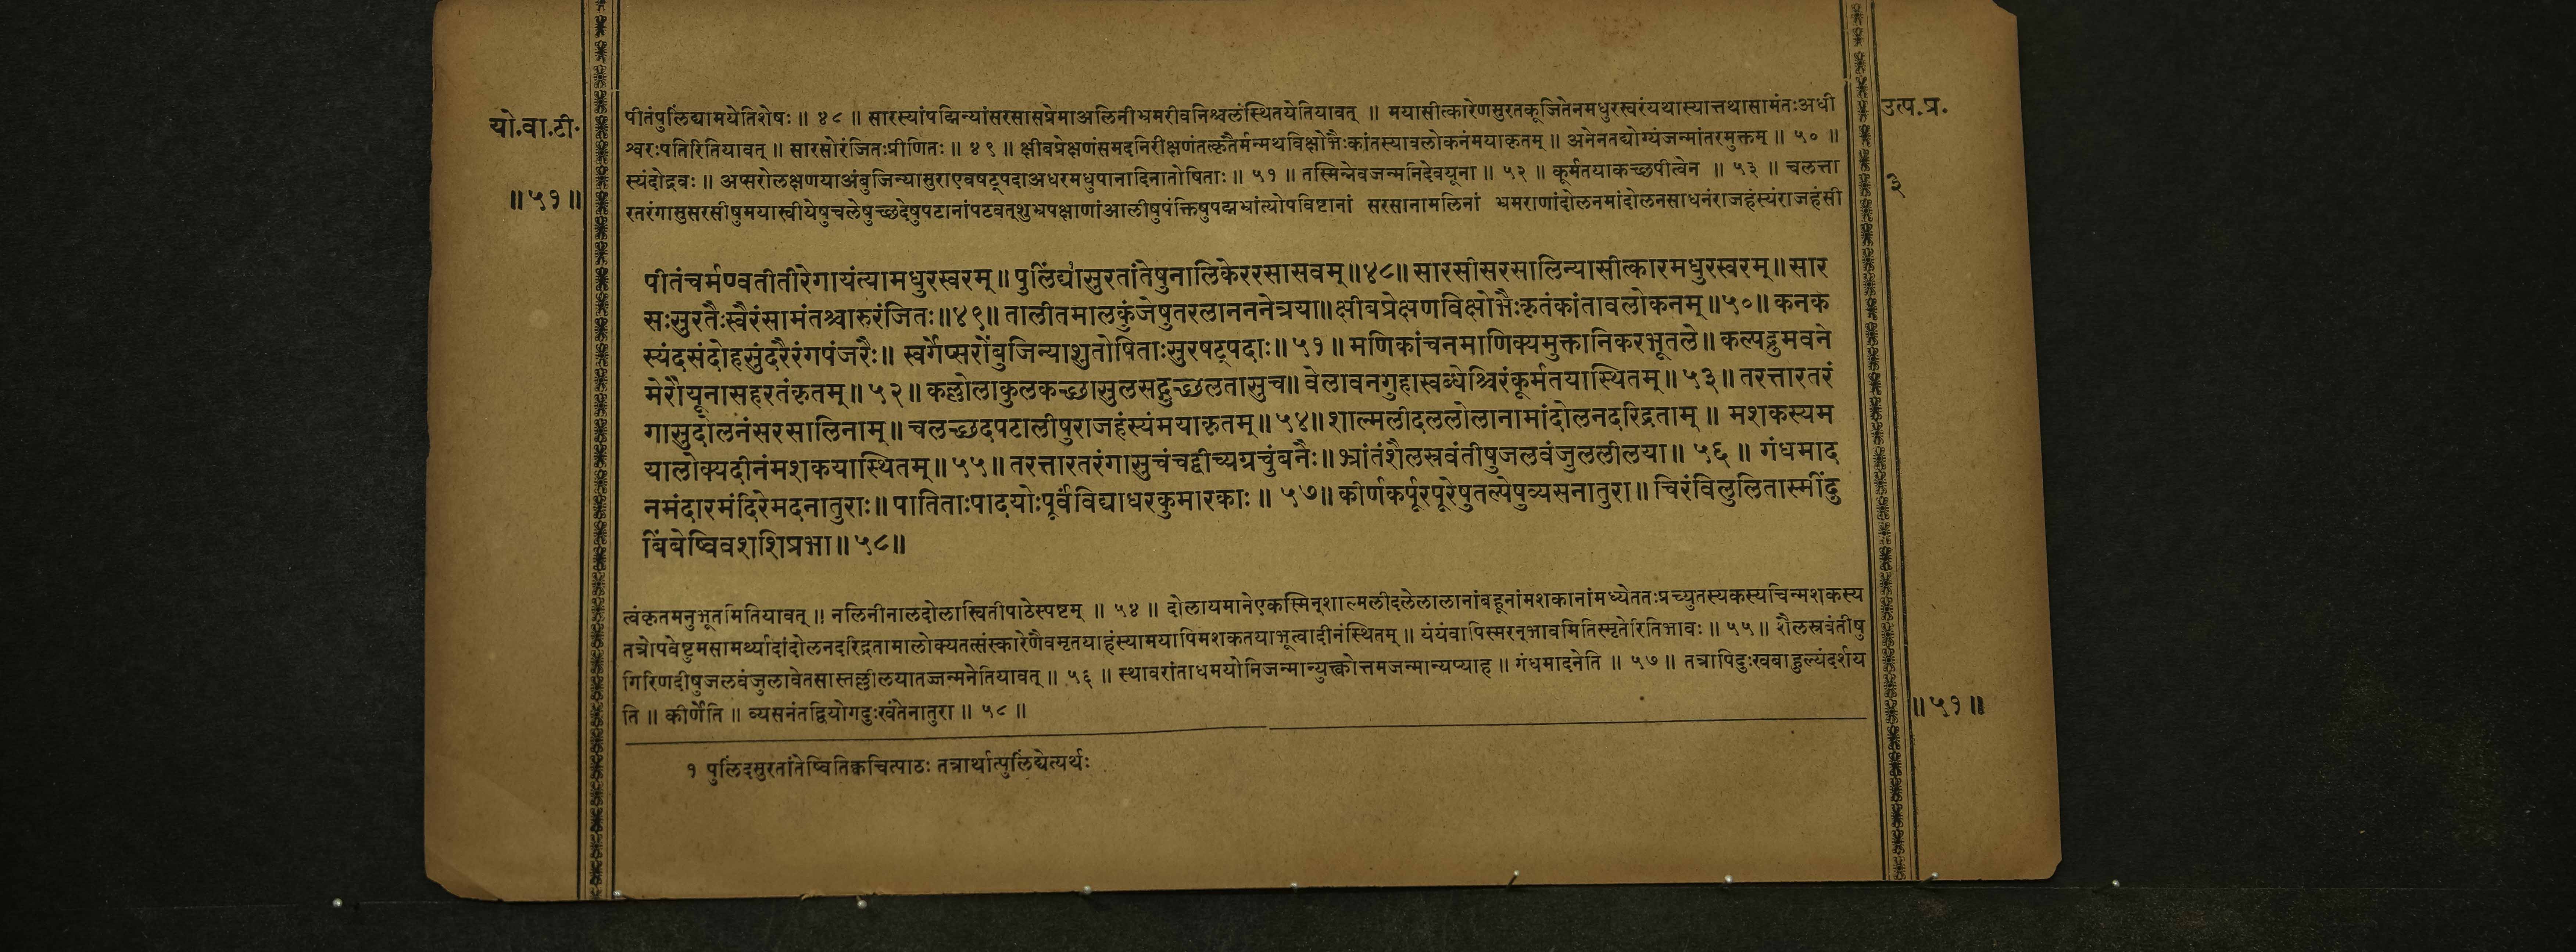 यो.वा.टी.
॥५१॥
उत्प.प्र.
३
पीतंपुलिंद्यामयेतिशेषः ॥ ४८ ॥ सारस्यांपद्मिन्यांसरसासप्रेमाअलिनीभ्रमरीवनिश्चलंस्थितयेतियावत् ॥ मयासीत्कारेणसुरतकूजितेनमधुरस्वरंयथास्यात्तथासामंतःअधी
श्वरःपतिरितियावत् ॥ सारसोरंजितःप्रीणितः ॥ ४९ ॥ क्षीबप्रेक्षणंसमदनिरीक्षणंतत्कृतैर्मन्मथविक्षोभैःकांतस्यावलोकनंमयाकृतम् ॥ अनेनतद्योग्यंजन्मांतरमुक्तम् ॥ ५० ॥
स्यंदोद्रवः ॥ अप्सरोलक्षणयाअंबुजिन्यासुराएवषट्पदाअधरमधुपानादिनातोषिताः ॥ ५१ ॥ तस्मिन्नेवजन्मनिदेवयूना ॥ ५२ ॥ कूर्मतयाकच्छपीत्वेन ॥ ५३ ॥ चलत्ता
रतरंगासुसरसीषुमयास्वीयेषुचलेषुच्छदेषुपटानांपटवत्शुभ्रपक्षाणांआलीषुपंक्तिषुपद्मभ्रांत्योपविष्टानां सरसानामलिनां भ्रमराणांदोलनमांदोलनसाधनंराजहंस्यंराजहंसी
पीतंचर्मण्वतीतीरेगायंत्यामधुरस्वरम्॥ पुलिंद्या१सुरतांतेषुनालिकेररसासवम्॥४८॥ सारसीसरसालिन्यासीत्कारमधुरस्वरम्॥ सार
सःसुरतैःस्वैरंसामंतश्चारुरंजितः॥४९॥ तालीतमालकुंजेषुतरलानननेत्रया॥ क्षीबप्रेक्षणविक्षोभैःकृतंकांतावलोकनम्॥५०॥ कनक
स्यंदसंदोहसुंदरैरंगपंजरैः॥ स्वर्गेप्सरोंबुजिन्याशुतोषिताःसुरषट्पदाः॥५१॥ मणिकांचनमाणिक्यमुक्तानिकरभूतले॥ कल्पद्रुमवने
मेरौयूनासहरतंकृतम्॥ ५२॥ कल्लोलाकुलकच्छासुलसद्गुच्छलतासुच॥ वेलावनगुहास्वब्धेश्चिरंकूर्मतयास्थितम्॥ ५३॥ तरत्तारतरं
गासुदोलनंसरसालिनाम्॥ चलच्छदपटालीषुराजहंस्यंमयाकृतम्॥ ५४॥ शाल्मलीदललोलानामांदोलनदरिद्रताम् ॥ मशकस्यम
यालोक्यदीनंमशकयास्थितम्॥ ५५॥ तरत्तारतरंगासुचंचद्वीच्यग्रचुंबनैः॥ भ्रांतंशैलस्रवंतीषुजलवंजुललीलया॥ ५६ ॥ गंधमाद
नमंदारमंदिरेमदनातुराः॥ पातिताःपादयोःपूर्वंविद्याधरकुमारकाः॥ ५७॥ कीर्णकर्पूरपूरेषुतल्पेषुव्यसनातुरा॥ चिरंविलुलितास्मींदु
बिंबेष्विवशशिप्रभा॥ ५८॥
त्वंकृतमनुभूतमितियावत् ॥ नलिनीनालदोलास्वितीपाठेस्पष्टम् ॥ ५४ ॥ दोलायमानेएकस्मिन्शाल्मलीदलेलालानांबहूनांमशकानांमध्येततःप्रच्युतस्यकस्यचिन्मशकस्य
तत्रोपवेष्टुमसामर्थ्यादांदोलनदरिद्रतामालोक्यतत्संस्कारेणैवमृतयाहंस्यामयापिमशकतयाभूत्वादीनंस्थितम् ॥ यंयंवापिस्मरन्भावमितिस्मृतेरितिभावः ॥ ५५ ॥ शैलस्रवंतीषु
गिरिणदीषुजलवंजुलावेतसास्तल्लीलयातज्जन्मनेतियावत् ॥ ५६ ॥ स्थावरांताधमयोनिजन्मान्युत्क्वोत्तमजन्मान्यप्याह ॥ गंधमादनेति ॥ ५७ ॥ तत्रापिदुःखबाहुल्यंदर्शय
ति ॥ कीर्णेति ॥ व्यसनंतद्वियोगदुःखंतेनातुरा ॥ ५८ ॥
॥५१॥
१ पुलिंदसुरतांतेष्वितिक्वचित्पाठः तत्रार्थात्पुलिंद्येत्यर्थः